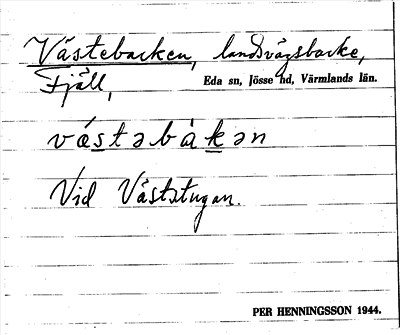 Västebacken, landsvägsbacke,
Fjäll, Eda sn, Jösse hd, Värmlands län.
vástəbàkən
Vid Väststugan.
PER HENNINGSSON 1944.